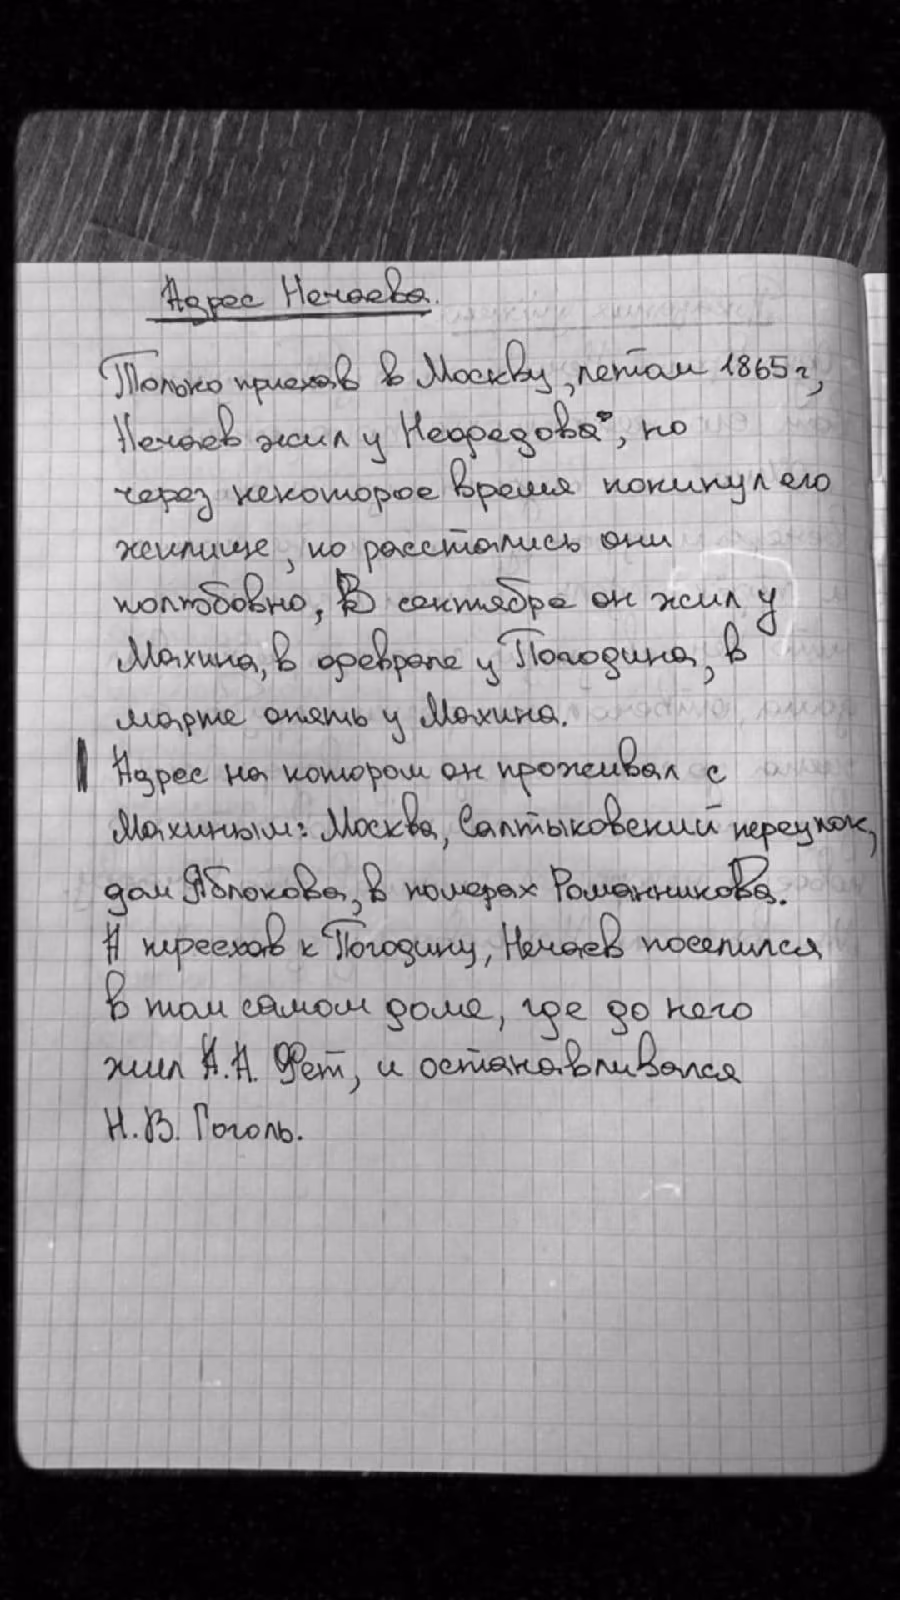 Адрес Нечаева.
Только приехав в Москву, летом 1865 г,
Нечаев жил у Нефедова, но
через некоторое время покинул его
жилище, но расстались они
полюбовно, В сентябре он жил у
Махина, в феврале у Погодина, в
марте опять у Махина.
Адрес на котором он проживал с
Махиным: Москва, Салтыковский переулок,
дом Яблокова, в номерах Романникова.
А переехав к Погодину, Нечаев поселился
в том самом доме, где до него
жил А.А. Фет, и останавливался
Н.В. Гоголь.